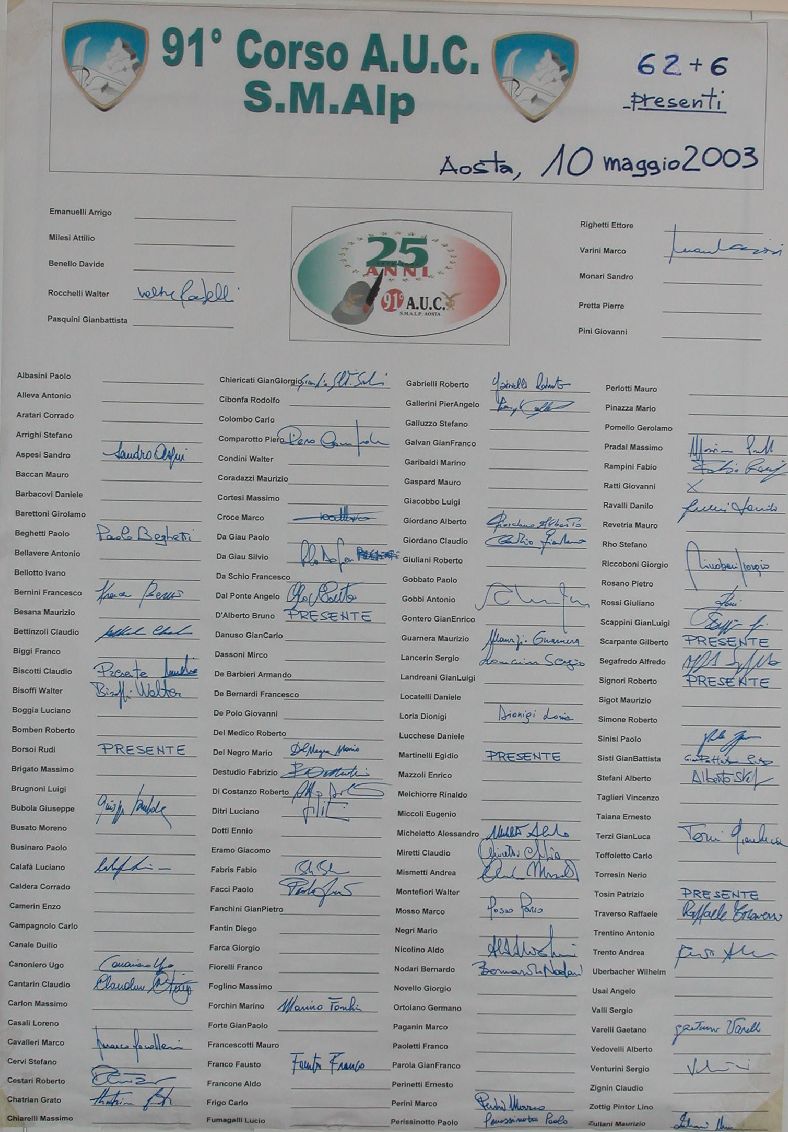 91° Corso A.U.C.
S.M.Alp
62+6
presenti
Aosta, 10 maggio 2003
Emanuelli Arrigo
Milesi Attilio
Benello Davide
Rocchelli Walter
Pasquini Gianbattista
25
ANNI
91° A.U.C.
S.M.ALP. AOSTA
Righetti Ettore
Varini Marco
Monari Sandro
Pretta Pierre
Pini Giovanni
Albasini Paolo
Alleva Antonio
Aratari Corrado
Arrighi Stefano
Aspesi Sandro
Baccan Mauro
Barbacovi Daniele
Barettoni Girolamo
Beghetti Paolo Paolo Beghetti
Bellavere Antonio
Bellotto Ivano
Bernini Francesco
Besana Maurizio
Bettinzoli Claudio
Biggi Franco
Biscotti Claudio Presente
Bisoffi Walter Bisoffi Walter
Boggia Luciano
Bomben Roberto
Borsoi Rudi PRESENTE
Brigato Massimo
Brugnoni Luigi
Bubola Giuseppe
Busato Moreno
Businaro Paolo
Calafà Luciano
Caldera Corrado
Camerin Enzo
Campagnolo Carlo
Canale Duilio
Canoniero Ugo
Cantarin Claudio
Carlon Massimo
Casali Loreno
Cavalleri Marco
Cervi Stefano
Cestari Roberto
Chatrian Grato
Chiarelli Massimo
Chiericati GianGiorgio
Cibonfa Rodolfo
Colombo Carlo
Comparotto Piero
Condini Walter
Coradazzi Maurizio
Cortesi Massimo
Croce Marco
Da Giau Paolo
Da Giau Silvio
Da Schio Francesco
Dal Ponte Angelo
D'Alberto Bruno PRESENTE
Danuso GianCarlo
Dassoni Mirco
De Barbieri Armando
De Bernardi Francesco
De Polo Giovanni
Del Medico Roberto
Del Negro Mario Del Negro Mario
Destudio Fabrizio
Di Costanzo Roberto
Ditri Luciano
Dotti Ennio
Eramo Giacomo
Fabris Fabio
Facci Paolo
Fanchini GianPietro
Fantin Diego
Farca Giorgio
Fiorelli Franco
Foglino Massimo
Forchin Marino
Forte GianPaolo
Francescotti Mauro
Franco Fausto
Francone Aldo
Frigo Carlo
Fumagalli Lucio
Gabrielli Roberto Gabrielli Roberto
Gallerini PierAngelo
Galluzzo Stefano
Galvan GianFranco
Garibaldi Marino
Gaspard Mauro
Giacobbo Luigi
Giordano Alberto Giordano Alberto
Giordano Claudio
Giuliani Roberto
Gobbato Paolo
Gobbi Antonio
Gontero GianEnrico
Guarnera Maurizio
Lancerin Sergio Lancerin Sergio
Landreani GianLuigi
Locatelli Daniele
Loria Dionigi Dionigi Loria
Lucchese Daniele
Martinelli Egidio PRESENTE
Mazzoli Enrico
Melchiorre Rinaldo
Miccoli Eugenio
Micheletto Alessandro
Miretti Claudio
Mismetti Andrea
Montefiori Walter
Mosso Marco
Negri Mario
Nicolino Aldo
Nodari Bernardo Bernardo Nodari
Novello Giorgio
Ortolano Germano
Paganin Marco
Paoletti Franco
Parola GianFranco
Perinetti Ernesto
Perini Marco
Perissinotto Paolo Perissinotto Paolo
Perlotti Mauro
Pinazza Mario
Pomello Gerolamo
Pradal Massimo
Rampini Fabio
Ratti Giovanni X
Ravalli Danilo
Revetria Mauro
Rho Stefano
Riccoboni Giorgio
Rosano Pietro
Rossi Giuliano
Scappini GianLuigi
Scarpante Gilberto PRESENTE
Segafredo Alfredo
Signori Roberto PRESENTE
Sigot Maurizio
Simone Roberto
Sinisi Paolo
Sisti GianBattista
Stefani Alberto
Taglieri Vincenzo
Taiana Ernesto
Terzi GianLuca
Toffoletto Carlo
Torresin Nerio
Tosin Patrizio PRESENTE
Traverso Raffaele Raffaele Traverso
Trentino Antonio
Trento Andrea
Uberbacher Wilhelm
Usai Angelo
Valli Sergio
Varelli Gaetano Gaetano Varelli
Vedovelli Alberto
Venturini Sergio
Zignin Claudio
Zottig Pintor Lino
Zuliani Maurizio